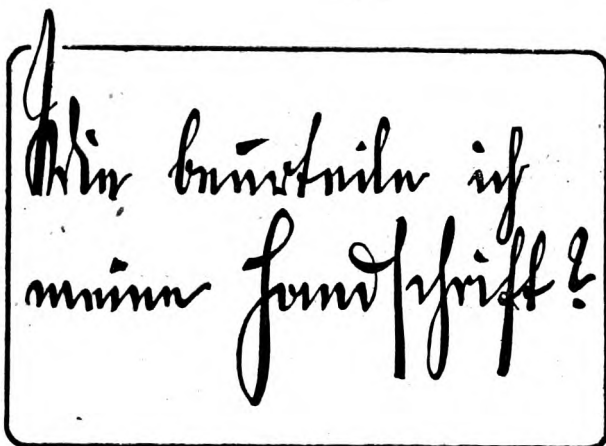 Wie beurteile ich
meine Handschrift?